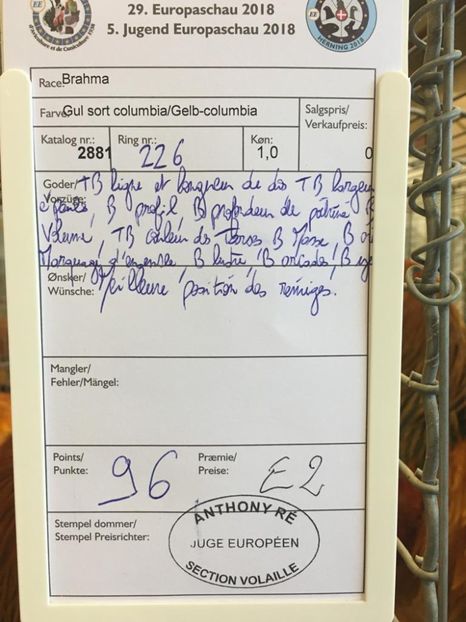 29. Europaschau 2018
5. Jugend Europaschau 2018
EE
EE
HERNING 2018
Race: Brahma
Farve: Gul sort columbia/Gelb-columbia
Salgspris/
Verkaufpreis:
0
Katalog nr.:
2881
Ring nr.:
226
Køn:
1,0
Goder/
Vorzüge:
TB ligne et longueur de dos TB largeur
B profil B profondeur de B
Volume, TB couleur des B Masse, B
Marquage d'ensemble B lustré, B B
Ønsker/
Wünsche:
Meilleure position des rémiges.
Mangler/
Fehler/Mängel:
Points/
Punkte:
96
Præmie/
Preise:
E2
Stempel dommer/
Stempel Preisrichter:
ANTHONY RÉ
JUGE EUROPÉEN
SECTION VOLAILLE